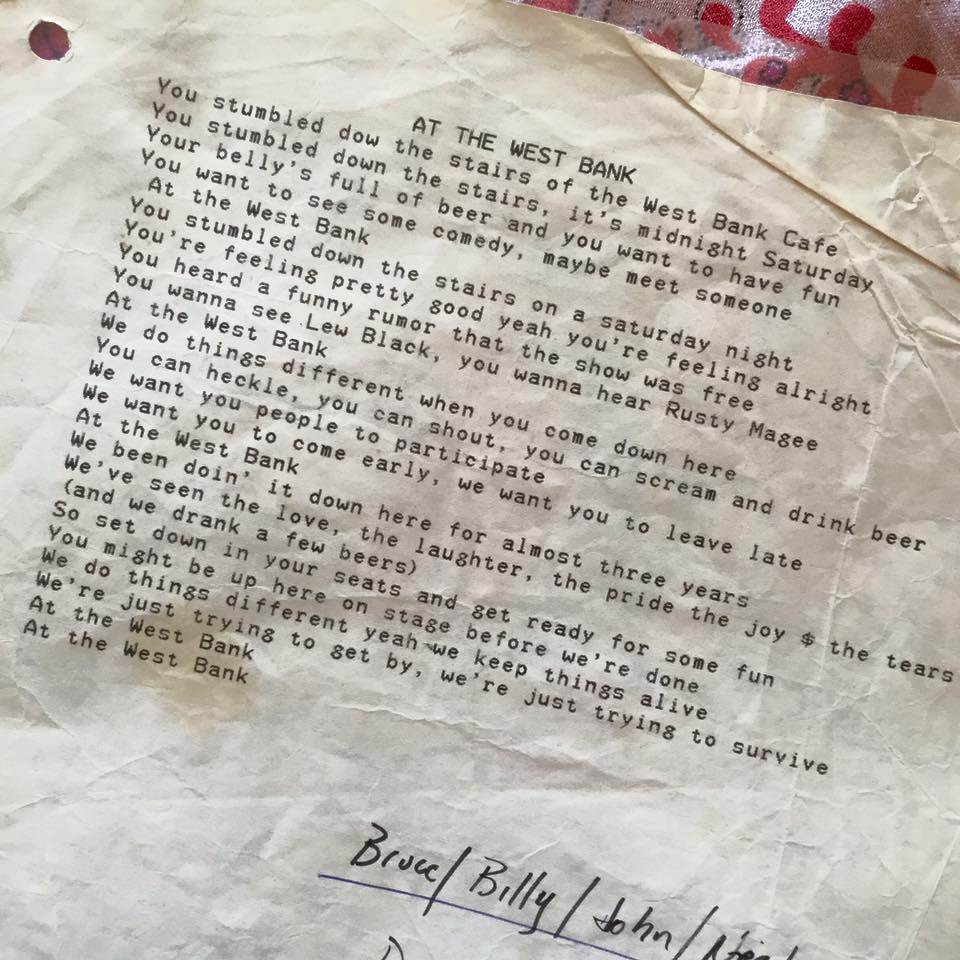 AT THE WEST BANK
You stumbled dow the stairs of the West Bank Cafe
You stumbled down the stairs, it's midnight Saturday
Your belly's full of beer and you want to have fun
You want to see some comedy, maybe meet someone
At the West Bank
You stumbled down the stairs on a saturday night
You're feeling pretty good yeah you're feeling alright
You heard a funny rumor that the show was free
You wanna see Lew Black, you wanna hear Rusty Magee
At the West Bank
We do things different when you come down here
You can heckle, you can shout, you can scream and drink beer
We want you people to participate
We want you to come early, we want you to leave late
At the West Bank
We been doin' it down here for almost three years
We've seen the love, the laughter, the pride the joy $ the tears
(and we drank a few beers)
So set down in your seats and get ready for some fun
You might be up here on stage before we're done
We do things different yeah we keep things alive
We're just trying to get by, we're just trying to survive
At the West Bank
At the West Bank
Bruce/Billy/John/